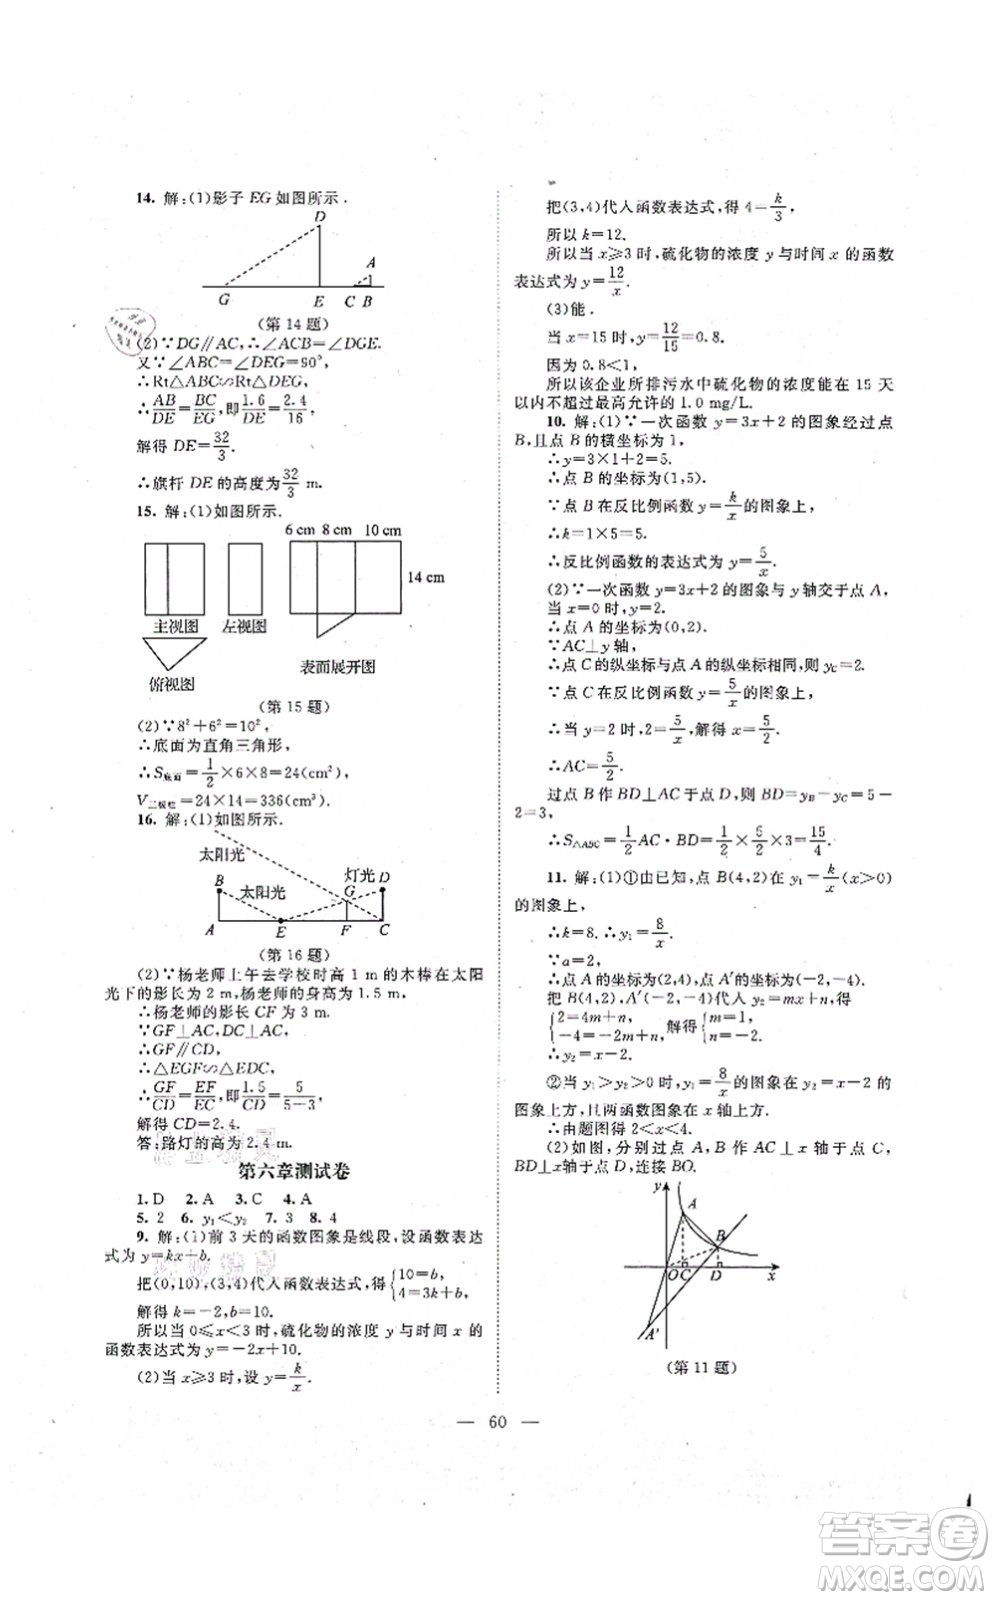 14. 解:(1)影子 EG 如图所示.
D
A
G E C B
(第 14 题)
(2)∵DG∥AC,∴∠ACB=∠DGE.
又∵∠ABC=∠DEG=90°,
∴Rt△ABC∽Rt△DEG,
∴AB/DE=BC/EG,即1.6/DE=2.4/16,
解得 DE=32/3,
∴旗杆 DE 的高度为32/3 m.
15. 解:(1)如图所示.
6 cm 8 cm 10 cm
14 cm
主视图 左视图
俯视图 表面展开图
(第 15 题)
(2)∵8²+6²=10²,
∴底面为直角三角形,
∴S底面=1/2×6×8=24(cm²),
V三棱柱=24×14=336(cm³).
16. 解:(1)如图所示.
太阳光 灯光
B 太阳光 G D
A E F C
(第 16 题)
(2)∵杨老师上午去学校时高 1 m 的木棒在太阳
光下的影长为 2 m,杨老师的身高为 1.5 m.
∴杨老师的影长 CF 为 3 m.
∵GF⊥AC,DC⊥AC,
∴GF∥CD,
∴△EGF∽△EDC,
∴GF/CD=EF/EC,即1.5/CD=5/(5-3),
解得 CD=2.4.
答:路灯的高为 2.4 m.
第六章测试卷
1. D 2. A 3. C 4. A
5. 2 6. y₁<y₂ 7. 3 8. 4
9. 解:(1)前 3 天的函数图象是线段,设函数表达
式为 y=kx+b.
把(0,10),(3,4)代入函数表达式,得{10=b, 4=3k+b,
解得 k=-2,b=10.
所以当 0≤x<3 时,硫化物的浓度 y 与时间 x 的
函数表达式为 y=-2x+10.
(2)当 x≥3 时,设 y=k/x.
把(3,4)代入函数表达式,得 4=k/3,
所以 k=12.
所以当 x≥3 时,硫化物的浓度 y 与时间 x 的函数
表达式为 y=12/x.
(3)能.
当 x=15 时,y=12/15=0.8.
因为 0.8<1,
所以该企业所排污水中硫化物的浓度能在 15 天
以内不超过最高允许的 1.0 mg/L.
10. 解:(1)∵一次函数 y=3x+2 的图象经过点
B,且点 B 的横坐标为 1,
∴y=3×1+2=5.
∴点 B 的坐标为(1,5).
∵点 B 在反比例函数 y=k/x的图象上,
∴k=1×5=5.
∴反比例函数的表达式为 y=5/x.
(2)∵一次函数 y=3x+2 的图象与 y 轴交于点 A,
当 x=0 时,y=2.
∴点 A 的坐标为(0,2).
∵AC⊥y 轴,
∴点 C 的纵坐标与点 A 的纵坐标相同,则 yC=2.
∵点 C 在反比例函数 y=5/x的图象上,
∴当 y=2 时,2=5/x,解得 x=5/2.
∴AC=5/2.
过点 B 作 BD⊥AC 于点 D,则 BD=yB-yC=5-
2=3,
∴S△ABC=1/2 AC·BD=1/2×5/2×3=15/4.
11. 解:(1)①由已知,点 B(4,2)在 y₁=k/x(x>0)
的图象上,
∴k=8.∴y₁=8/x.
∵a=2,
∴点 A 的坐标为(2,4),点 A′的坐标为(-2,-4).
把 B(4,2),A′(-2,-4)代入 y₂=mx+n,得
{2=4m+n, -4=-2m+n, 解得{m=1, n=-2.
∴y₂=x-2.
②当 y₁>y₂>0 时,y₁=8/x的图象在 y₂=x-2 的
图象上方,且两函数图象在 x 轴上方.
∴由题图得 2<x<4.
(2)如图,分别过点 A,B 作 AC⊥x 轴于点 C,
BD⊥x轴于点 D,连接 BO.
y
A
B
O C D x
A′
(第 11 题)
— 60 —
答案卷
MXQE.COM